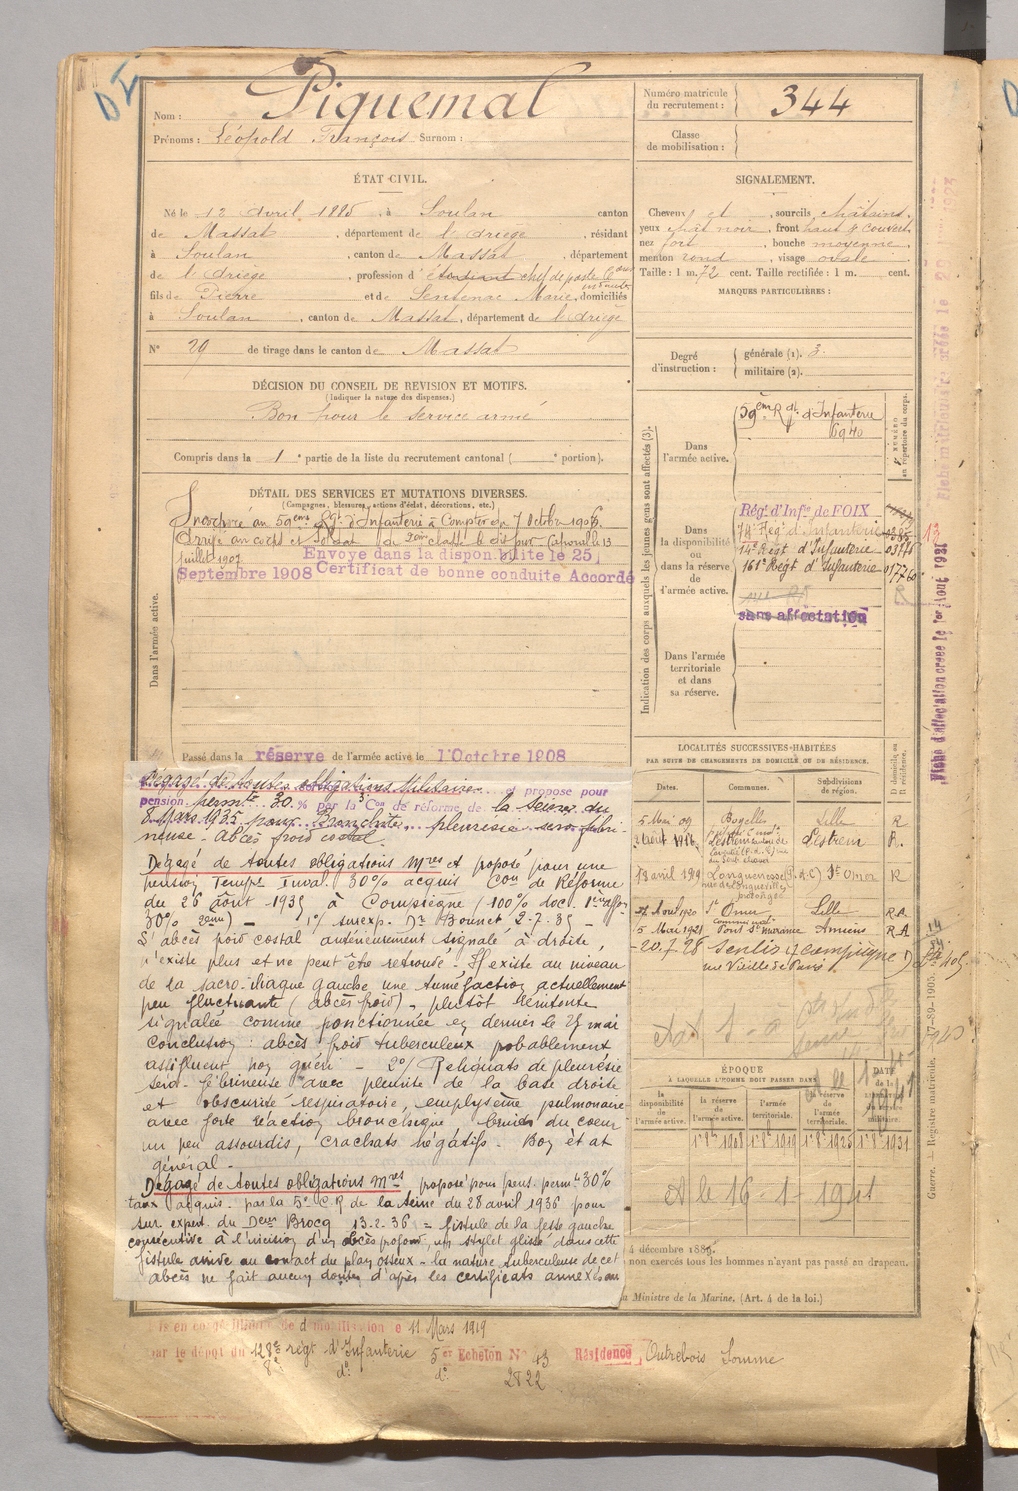 Nom : Piquemal
Prénoms : Léopold François Surnom :
Numéro matricule du recrutement : 344
Classe de mobilisation :
ÉTAT CIVIL.
Né le 12 avril 1885 à Soulan canton
de Massat, département de l'Ariège, résidant
à Soulan, canton de Massat, département
de l'Ariège, profession d'étudiant chef de poste
fils de Pierre et de Sentenac Marie, domiciliés
à Soulan, canton de Massat, département de l'Ariège
N° 29 de tirage dans le canton de Massat
SIGNALEMENT.
Cheveux et, sourcils châtains,
yeux chât noir, front haut & couvert,
nez fort, bouche moyenne,
menton rond, visage ovale
Taille : 1 m. 72 cent. Taille rectifiée : 1 m. cent.
MARQUES PARTICULIÈRES :
Degré d'instruction : générale (1). 3.
militaire (2).
DÉCISION DU CONSEIL DE REVISION ET MOTIFS.
(Indiquer la nature des dispenses.)
Bon pour le service armé
Compris dans la 1e partie de la liste du recrutement cantonal ( e portion).
DÉTAIL DES SERVICES ET MUTATIONS DIVERSES.
(Campagnes, blessures, actions d'éclat, décorations, etc.)
Incorporé au 59eme Rgt d'Infanterie à Compter du 7 Octobre 1906.
Arrivé au corps et Soldat de 2eme classe le dit jour Caporal le 13
juillet 1907
Envoyé dans la disponibilité le 25
Septembre 1908 Certificat de bonne conduite Accordé
Dans l'armée active.
Passé dans la réserve de l'armée active le 1 Octobre 1908
Indication des corps auxquels les jeunes gens sont affectés (3).
Dans l'armée active.
59em Rgt d'Infanterie
6940
Dans la disponibilité ou dans la réserve de l'armée active.
Régt d'Infie de FOIX
14e Régt d'Infanterie
161e Régt d'Infanterie 017760
sans affectation
Dans l'armée territoriale et dans sa réserve.
NUMÉRO au répertoire du corps.
LOCALITÉS SUCCESSIVES HABITÉES
PAR SUITE DE CHANGEMENTS DE DOMICILE OU DE RÉSIDENCE.
Dates. Communes. Subdivisions de région. D domicile ou R résidence.
5 Mai 09 Lille R
Lestrem R.
13 avril 1919 Longuenesse (P.d.C) St Omer R
Aout 1920 St Omer Lille R.A.
5 Mai 1921 Pont Ste Maxence Amiens R.A
20.7.26 Senlis Compiègne D
rue Vieille de Paris
ÉPOQUE
À LAQUELLE L'HOMME DOIT PASSER DANS
la disponibilité de l'armée active. la réserve de l'armée active. l'armée territoriale. la réserve de l'armée territoriale. DATE de la libération du service militaire.
1er 8bre 1908 1er 8bre 1919 1er 8bre 1925 1er 8bre 1931
le 16-1-1941
Dégagé de toutes obligations Militaires et proposé pour
pension permte 30 % par la 3e Con de réforme de la Seine du
8 Mars 1935 pour Bronchite, pleurésie séro-fibri-
neuse - Abcès froid costal.
Dégagé de toutes obligations Mres et proposé pour une
pension Tempre Inval. 30% acquis Con de Réforme
du 26 août 1935 à Compiègne (100% doc. 1ère affon
30% 2eme) - 1°/ surexp. Dr Bonnet 2-7-35 -
L'abcès froid costal antérieurement signalé à droite,
n'existe plus et ne peut être retrouvé - Il existe au niveau
de la sacro-iliaque gauche une tuméfaction actuellement
peu fluctuante (abcès froid) - plutôt rénitente
signalée comme ponctionnée en dernier le 25 mai
Conclusion : abcès froid tuberculeux probablement
ossifluent non guéri - 2°/ Reliquats de pleurésie
séro-fibrineuse avec pleurite de la base droite
et obscurité respiratoire, emphysème pulmonaire
avec forte réaction bronchique bruits du coeur
un peu assourdis, crachats négatifs. Bon état
général -
Dégagé de toutes obligations Mres proposé pour pens. permte 30%
taux acquis par la 5e C.R de la Seine du 28 avril 1936 pour
sur expert. du Deur Brocq 13-2-36 = fistule de la fesse gauche
consécutive à l'incision d'un abcès profond, un stylet glissé dans cette
fistule arrive au contact du plan osseux - la nature tuberculeuse de cet
abcès ne fait aucun doute d'après les certificats annexés au
4 décembre 1889.
non exercés tous les hommes n'ayant pas passé au drapeau.
Ministre de la Marine. (Art. 4 de la loi.)
Mis en congé illimité de démobilisation le 11 Mars 1919
par le dépôt du 128e régt d'Infanterie 5er Echelon N° 43 Résidence Outrebois Somme
8e do do 2822
Fiche d'affectation créée le 1er Août 1921
Guerre. — Registre matricule. 17-89-1905.